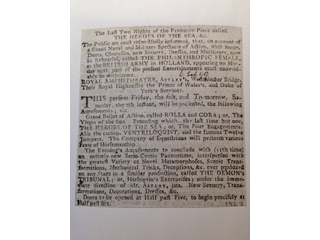 The Last Two Nights of the Favourite Piece called
THE HEROES OF THE SEA, &c.
The Public are most respectfully informed, that, on account of
a Grand Naval and Military Spectacle of Action, with Songs,
Duets, Chorusses, new Scenery, Dresses, and Machinery, now
in rehearsal, called THE PHILANTHROPIC FEMALE,
or the BRITISH ARMY in HOLLAND, appearing on Mon-
day next, part of the present Entertainments must unavoid-
ably be withdrawn.
ROYAL AMPHITHEATRE, ASTLEY'S, Westminster Bridge,
Their Royal Highnesses the Prince of Wales's, and Duke
of York's Servants.
THIS present Friday, the 6th, and To-morrow, Sa-
turday, the 7th instant, will be presented, the following
Amusements; viz.
Grand Ballet of Action, called ROLLA and CORA; or, The
Virgin of the Sun. Preceding which, the last time but one,
THE HEROES OF THE SEA; or, The Four Engagements.
Also the curious VENTRILOQUIST, and the famous Twelve
Jumpers. The Company of Equestrians will perform various
Feats of Horsemanship.
The Evening's Amusements to conclude with (18th time)
an entirely new Serio-Comic Pantomime, interspersed with
the greatest Variety of Novel Metamorphoses, Scenic Trans-
formations, Mechanical Changes, Deceptions, &c. ever produced
on any Stage in a similar production, called THE DEMON'S
TRIBUNAL; or, Harlequin's Enterprises; under the imme-
diate direction of Mr. ASTLEY, jun. New Scenery, Trans-
formations, Decorations, Dresses, &c.
Doors to be opened at Half past Five, to begin precisely at
Half past Six.